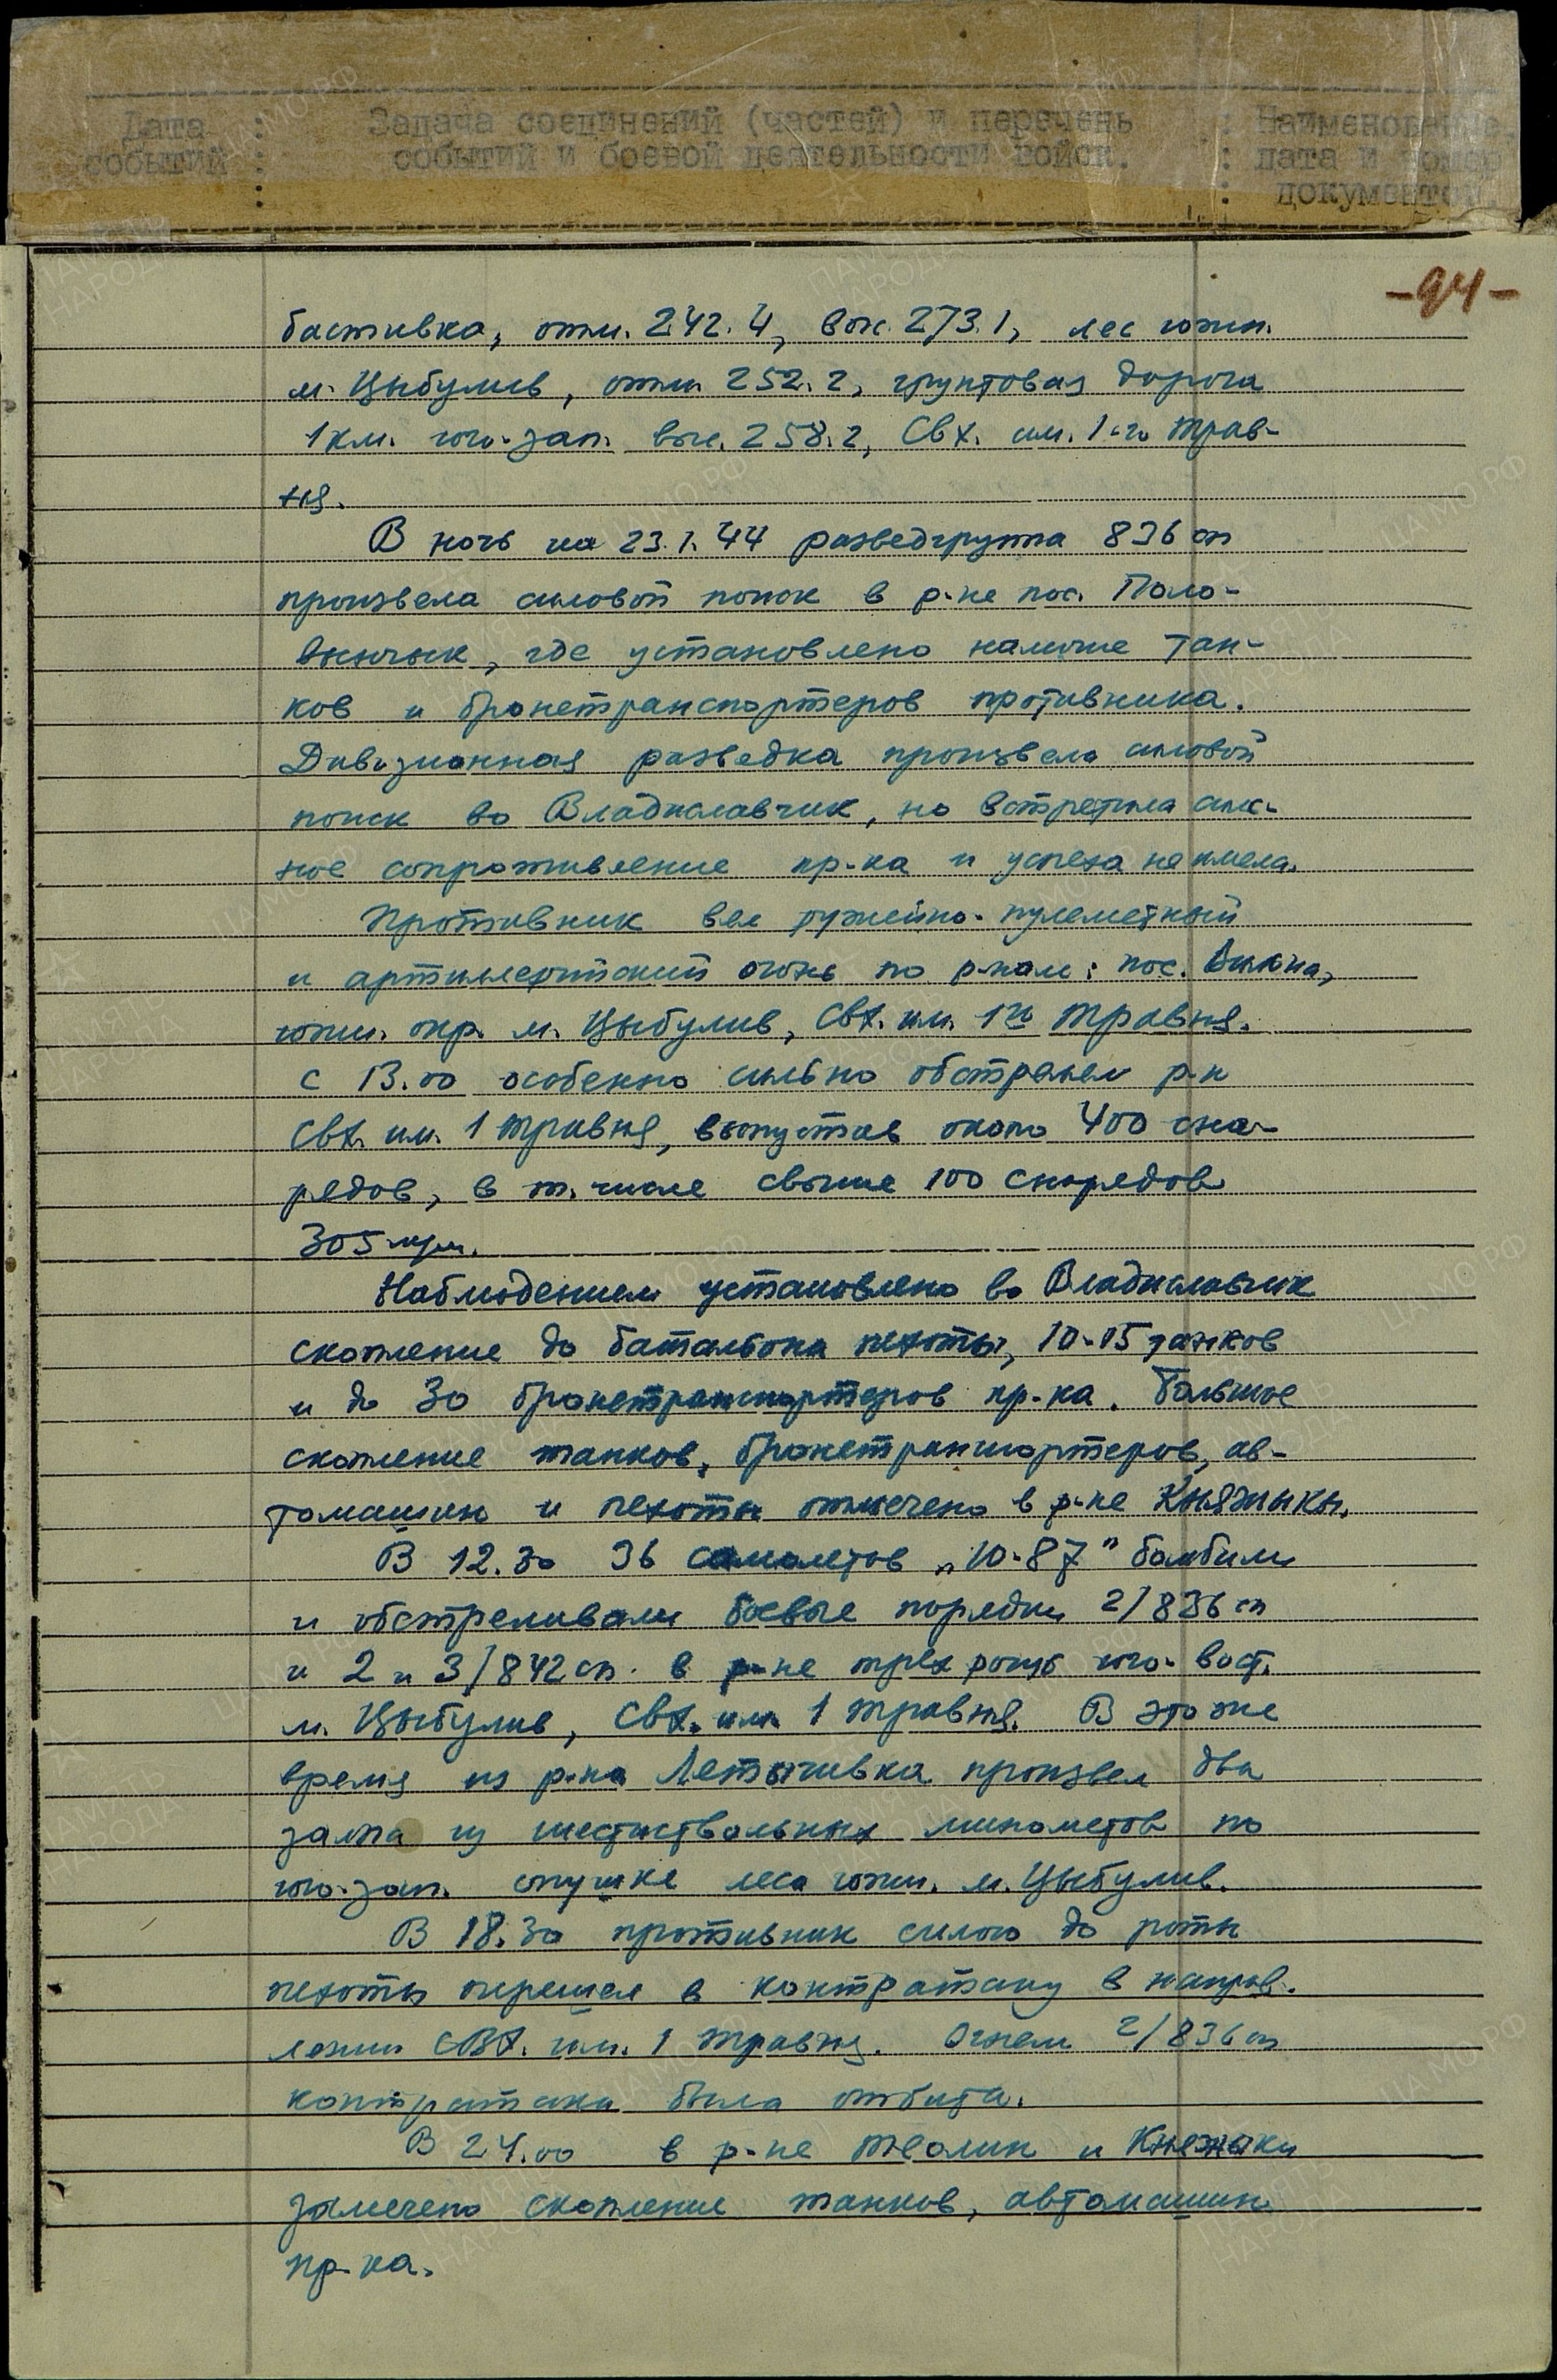 Дата : Задача соединений (частей) и перечень : Наименование,
событий : событий и боевой деятельности войск. : дата и номер
: : документов.
-94-
бастивка, отм. 242.4, выс. 273.1, лес южн.
м. Цыбулив, отм. 252.2, грунтовая дорога
1 км. юго-зап. выс. 258.2, Свх. им. 1-го Трав-
ня.
В ночь на 23.1.44 разведгруппа 836 сп
произвела силовой поиск в р-не пос. Поло-
вынчык, где установлено наличие тан-
ков и бронетранспортеров противника.
Дивизионная разведка произвела силовой
поиск во Владиславчик, но встретила силь-
ное сопротивление пр-ка и успеха не имела.
Противник вел ружейно-пулеметный
и артиллерийский огонь по р-нам: пос.
южн. окр. м. Цыбулив, Свх. им. 1го Травня.
С 13.00 особенно сильно обстрелял р-н
Свх. им. 1 Травня, выпустив около 400 сна-
рядов, в т. числе свыше 100 снарядов
305 м/м.
Наблюдением установлено во Владиславчик
скопление до батальона пехоты, 10-15 танков
и до 30 бронетранспортеров пр-ка. Большое
скопление танков, бронетранспортеров, ав-
томашин и пехоты отмечено в р-не Княжики.
В 12.30 36 самолетов „Ю-87" бомбили
и обстреливали боевые порядки 2/836 сп
и 2 и 3/842 сп. в р-не трех рощ юго-вост.
м. Цыбулив, Свх. им. 1 Травня. В это же
время из р-на Летычивка произвел два
залпа из шестиствольных минометов по
юго-зап. опушке леса южн. м. Цыбулив.
В 18.30 противник силою до роты
пехоты перешел в контратаку в направ-
лении СВХ. им. 1 Травня. Огнем 2/836 сп
контратака была отбита.
В 24.00 в р-не Теолин и Княжики
замечено скопление танков, автомашин
пр-ка.